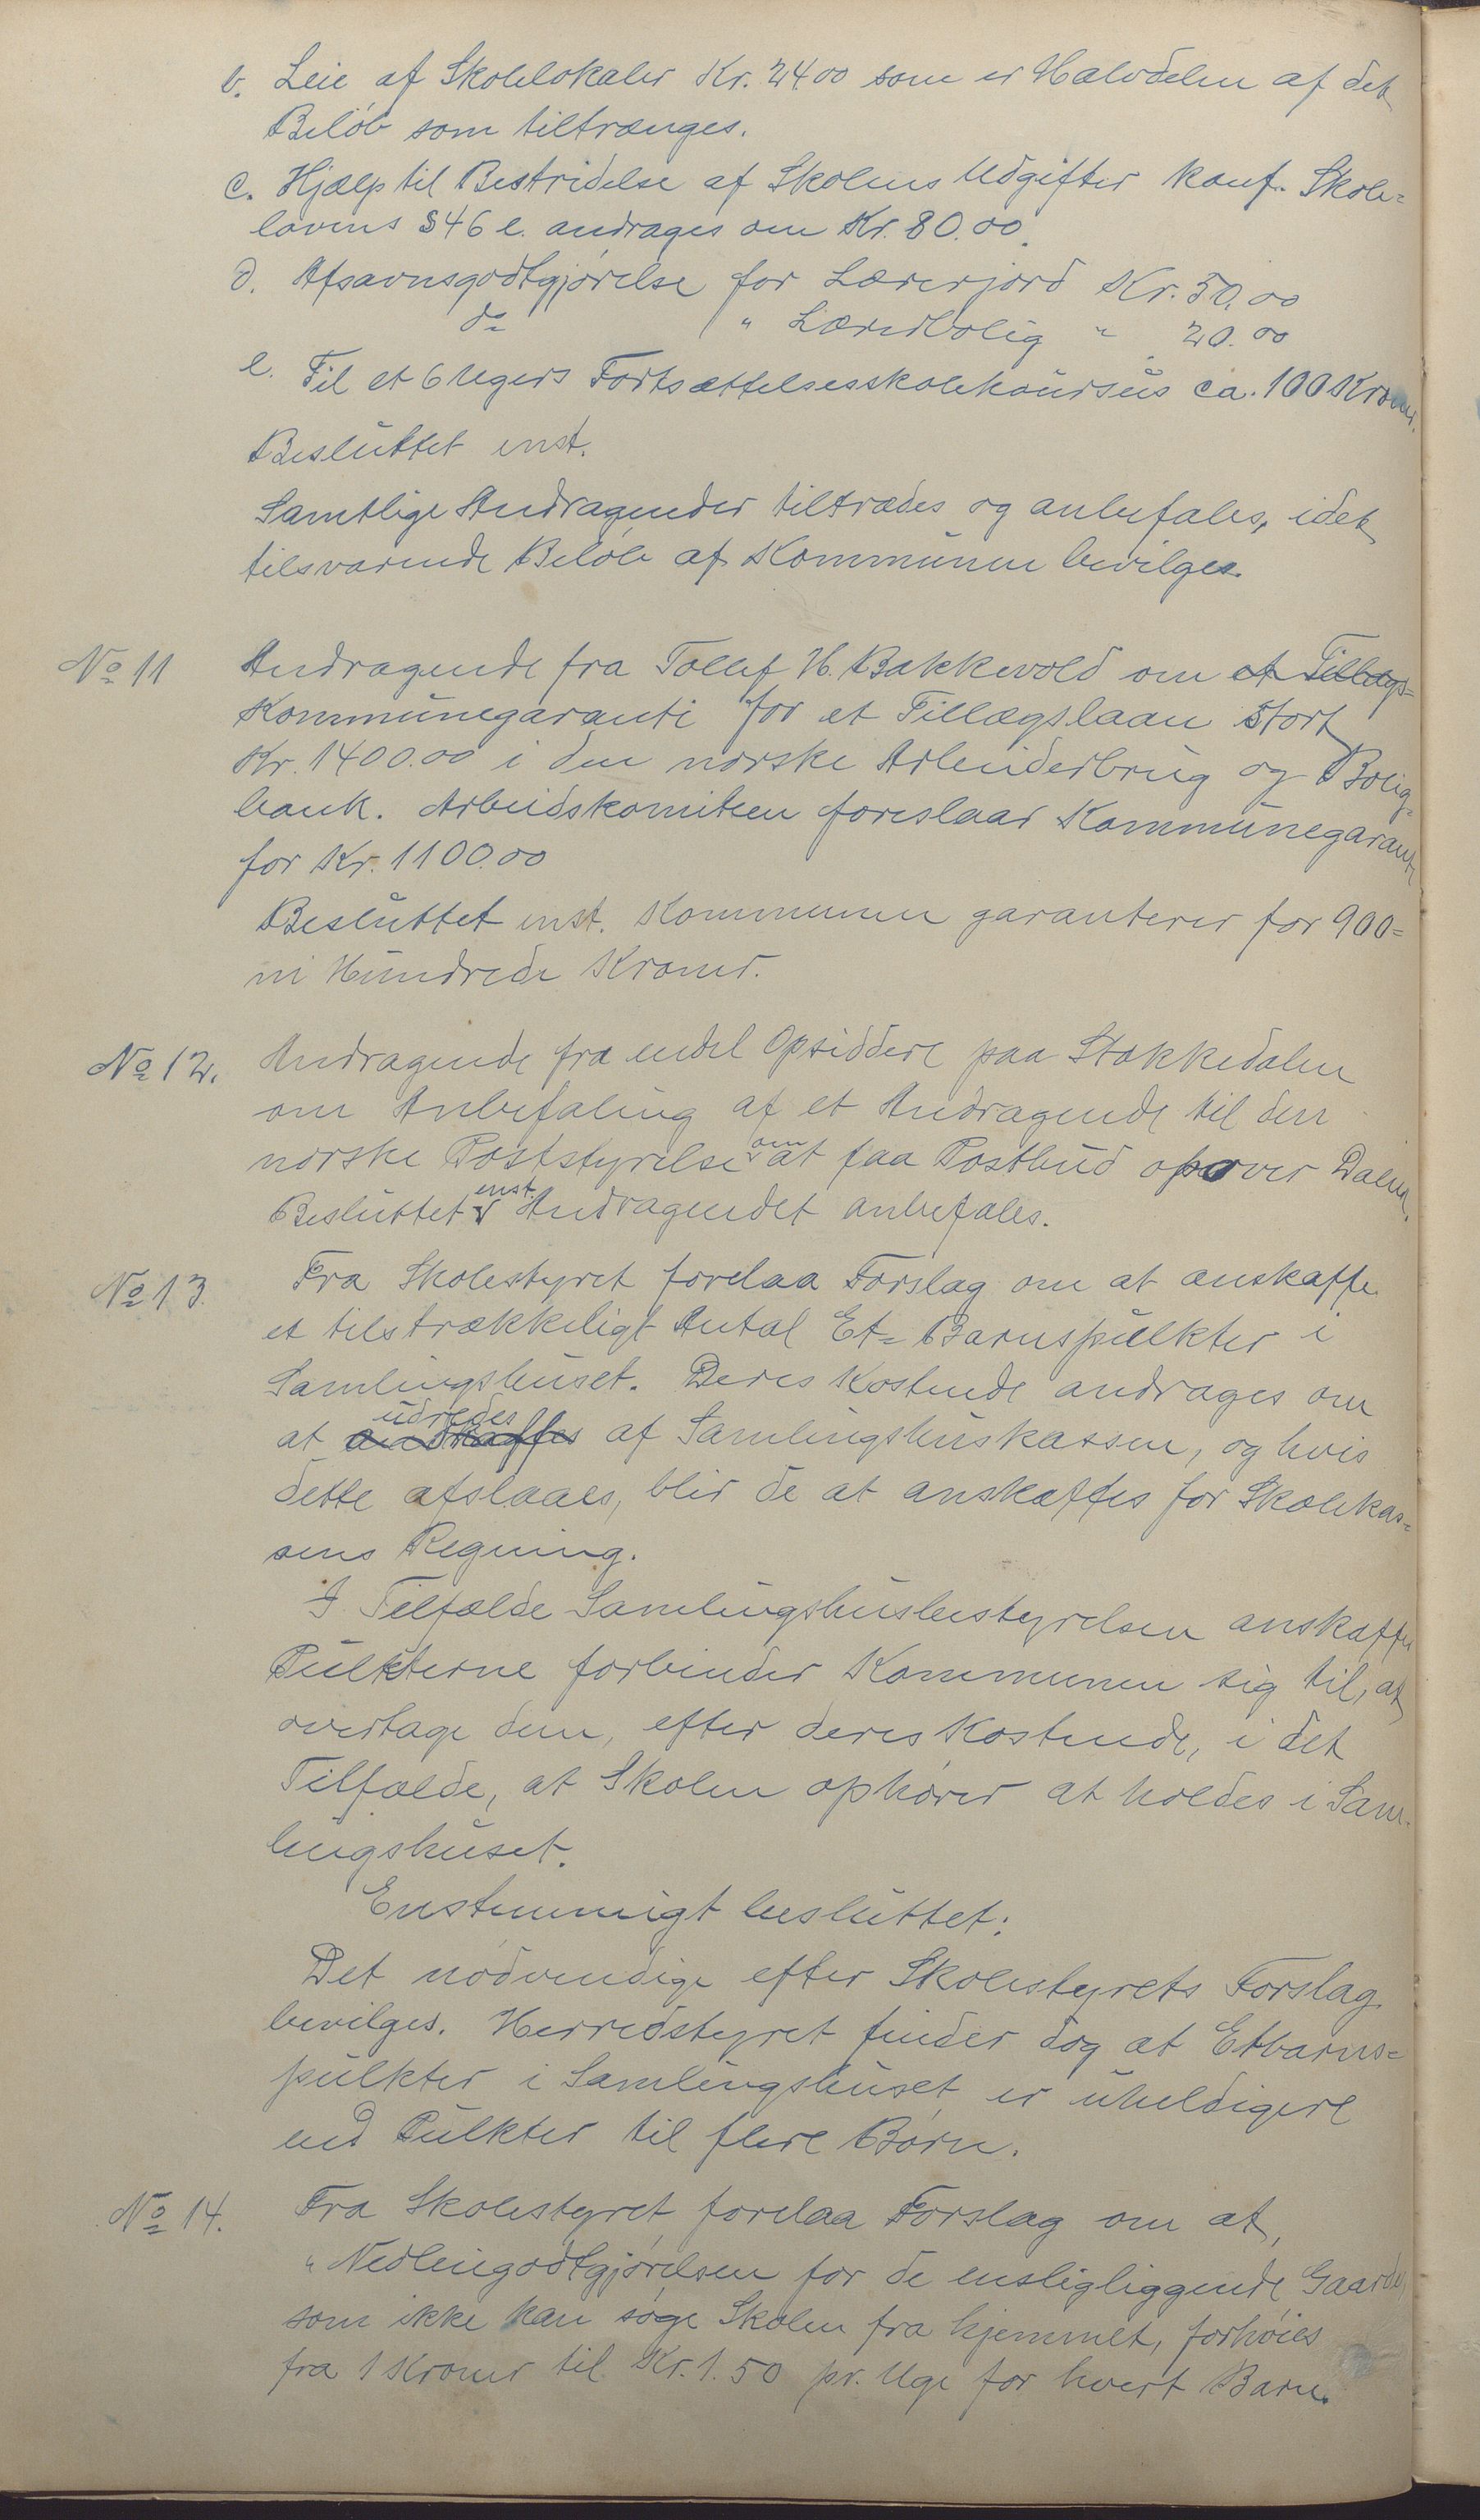 b. Leie af Skolelokaler Kr. 24.00 som er Halvdelen af det
Beløb som tiltrænges.
c. Hjælp til Bestridelse af Skolens Udgifter konf. Skole=
lovens §46 e. andrages om Kr. 80.00.
d. Afsavnsgodtgjørelse for Lærerjord Kr. 50.00
do " Lærerbolig " 20.00
e. Til et 6 Ugers Fortsættelsesskolekoursus ca. 100 Kroner.
Besluttet enst.
Samtlige Andragender tiltrædes og anbefales, idet
tilsvarende Beløb af Kommunen bevilges.
No 11 Andragende fra Tollef H. Bakkevold om et Tillægs=
Kommunegaranti for et Tillægslaan stort
Kr. 1400.00 i den norske Arbeiderbrug og Bolig=
bank. Arbeidskomiteen foreslaar Kommunegaranti
for Kr. 1100.00
Besluttet enst. Kommunen garanterer for 900=
ni Hundrede Kroner.
No 12. Andragende fra endel Opsiddere paa Stokkedalen
om Anbefaling af et Andragende til den
norske Poststyrelse om at faa Postbud opover Dalen.
Besluttet enst. Andragendet anbefales.
No 13. Fra Skolestyret forelaa Forslag om at anskaffe
et tilstrækkeligt Antal Et=Barnspulkter i
Samlingshuset. Deres Kostende andrages om
at anskaffes udredes af Samlingshuskassen, og hvis
dette afslaaes, blir de at anskaffes for Skolekas=
sens Regning.
I Tilfælde Samlingshusbestyrelsen anskaffer
Pulkterne forbinder Kommunen sig til, at
overtage dem, efter deres Kostende, i det
Tilfælde, at Skolen ophører at holdes i Sam=
lingshuset.
Enstemmigt besluttet:
Det nødvendige efter Skolestyrets Forslag
bevilges. Herredstyret finder dog at Etbarns=
pulkter i Samlingshuset er uheldigere
end Pulkter til flere Børn.
No 14. Fra Skolestyret forelaa Forslag om at,
"Nedleiegodtgjørelsen for de ensligliggende Gaarde,
som ikke kan søge Skolen fra hjemmet, forhøies
fra 1 Kroner til Kr. 1.50 pr. Uge for hvert Barn.